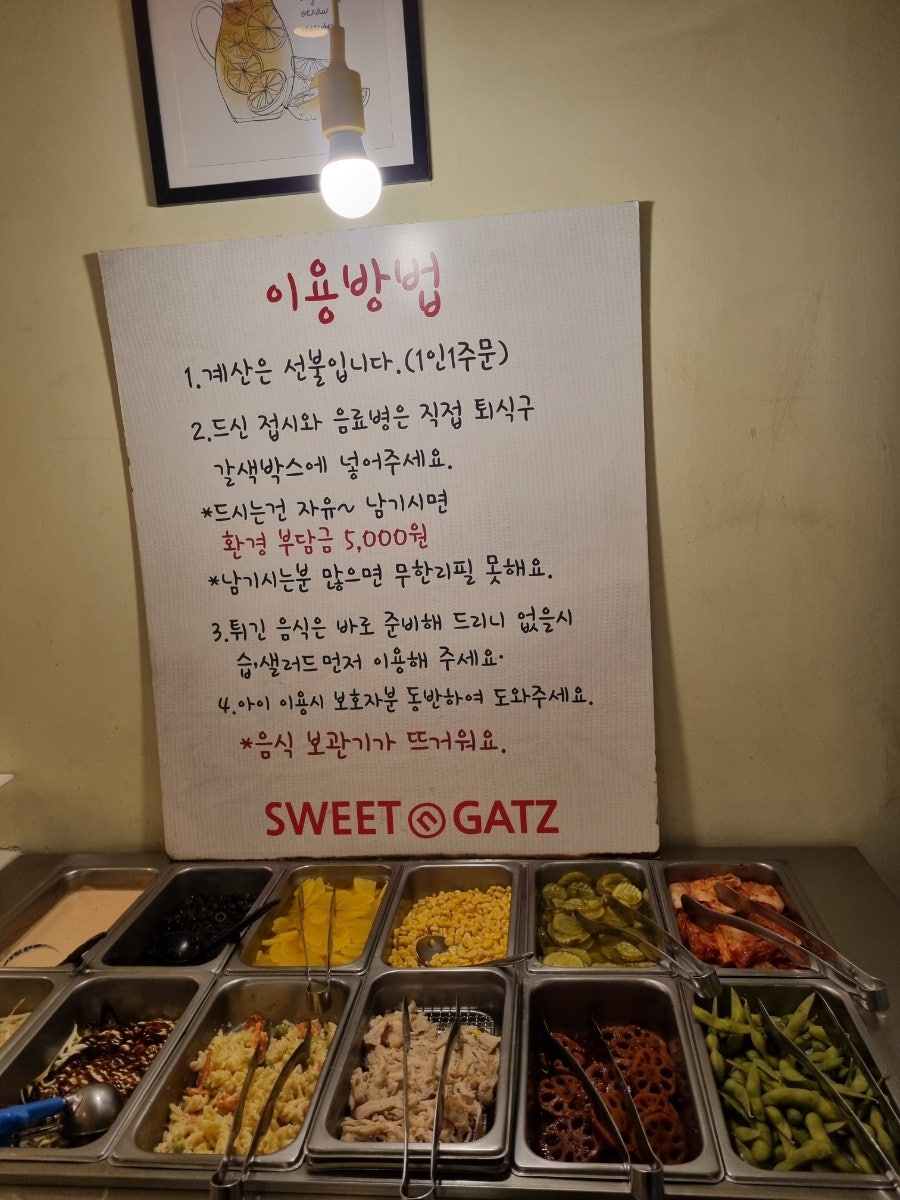 straw
이용방법
1.계산은 선불입니다.(1인1주문)
2.드신 접시와 음료병은 직접 퇴식구
갈색박스에 넣어주세요.
*드시는건 자유~ 남기시면
환경 부담금 5,000원
*남기시는분 많으면 무한리필 못해요.
3.튀긴 음식은 바로 준비해 드리니 없을시
습,샐러드먼저 이용해 주세요.
4.아이 이용시 보호자분 동반하여 도와주세요.
*음식 보관기가 뜨거워요.
SWEET n GATZ